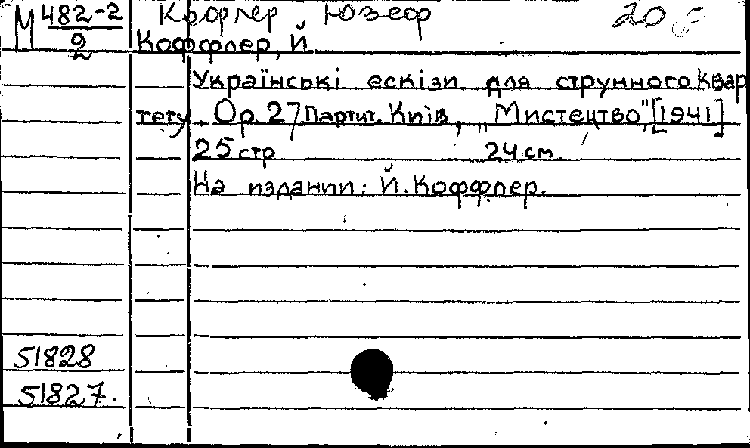 М 482-2
2
Кофлер Юзеф
20
Коффлер, Й.
Українські ескізи для струнного квар
тету. Ор. 27 Партит. Київ, „Мистецтво", [1941]
25 стр 24 см.
На издании: Й. Коффлер.
51828
51827.